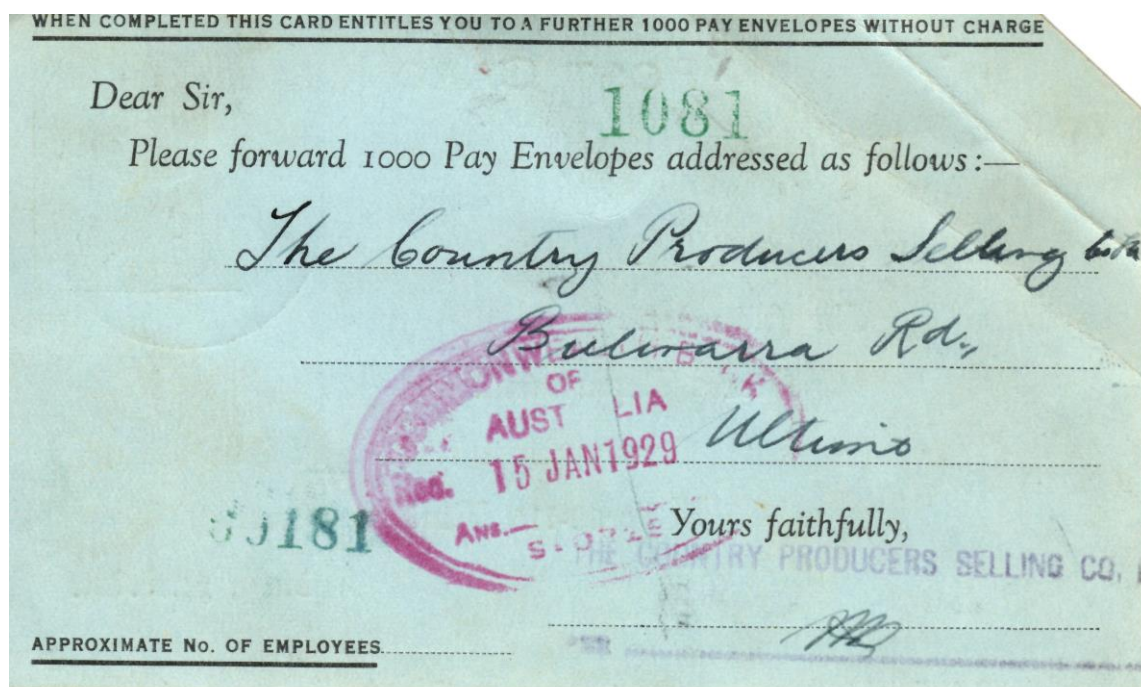 WHEN COMPLETED THIS CARD ENTITLES YOU TO A FURTHER 1000 PAY ENVELOPES WITHOUT CHARGE
Dear Sir,
1081
Please forward 1000 Pay Envelopes addressed as follows:—
The Country Producers Selling
Bulwarra Rd.,
OF
AUST LIA
Ultimo
Rec. 15 JAN 1929
181
Ans.— STORES
Yours faithfully,
THE COUNTRY PRODUCERS SELLING CO.
APPROXIMATE No. OF EMPLOYEES